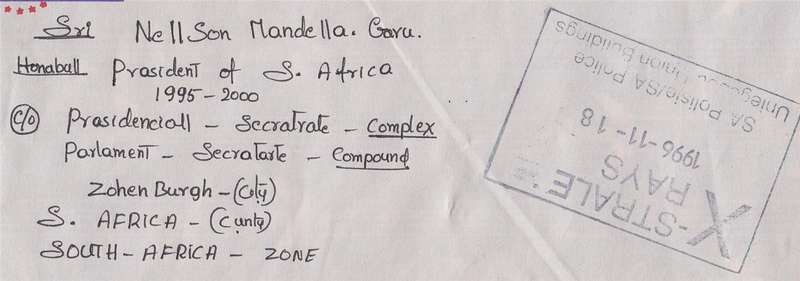 Sri Nellson Mandella. Garu.
Honaball Prasident of S. Africa
1995-2000
C/o Prasidenciall - Secratrate - Complex
Parlament - Secratarte - Compound
Zohen Burgh - (City)
S. AFRICA - (Cunty)
SOUTH-AFRICA - ZONE
X-STRALE
RAYS
1996-11-18
SA Polisie/SA Police
Union Buildings